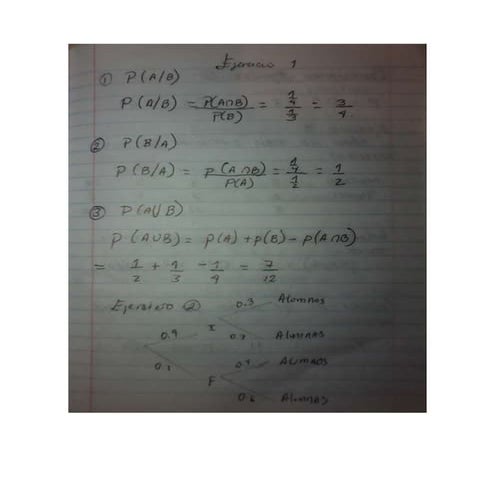 Ejercicio 1
① P(A/B)
P(A/B) = P(A∩B)/P(B) = 1/4 / 1/3 = 3/4
② P(B/A)
P(B/A) = P(A∩B)/P(A) = 1/4 / 1/2 = 1/2
③ P(A∪B)
P(A∪B) = P(A) + P(B) - P(A∩B)
= 1/2 + 1/3 - 1/4 = 7/12
Ejercicio ②
0.3 Alumnos
0.9 I
0.7 Alumnas
0.1 F
Alumnos
Alumnas